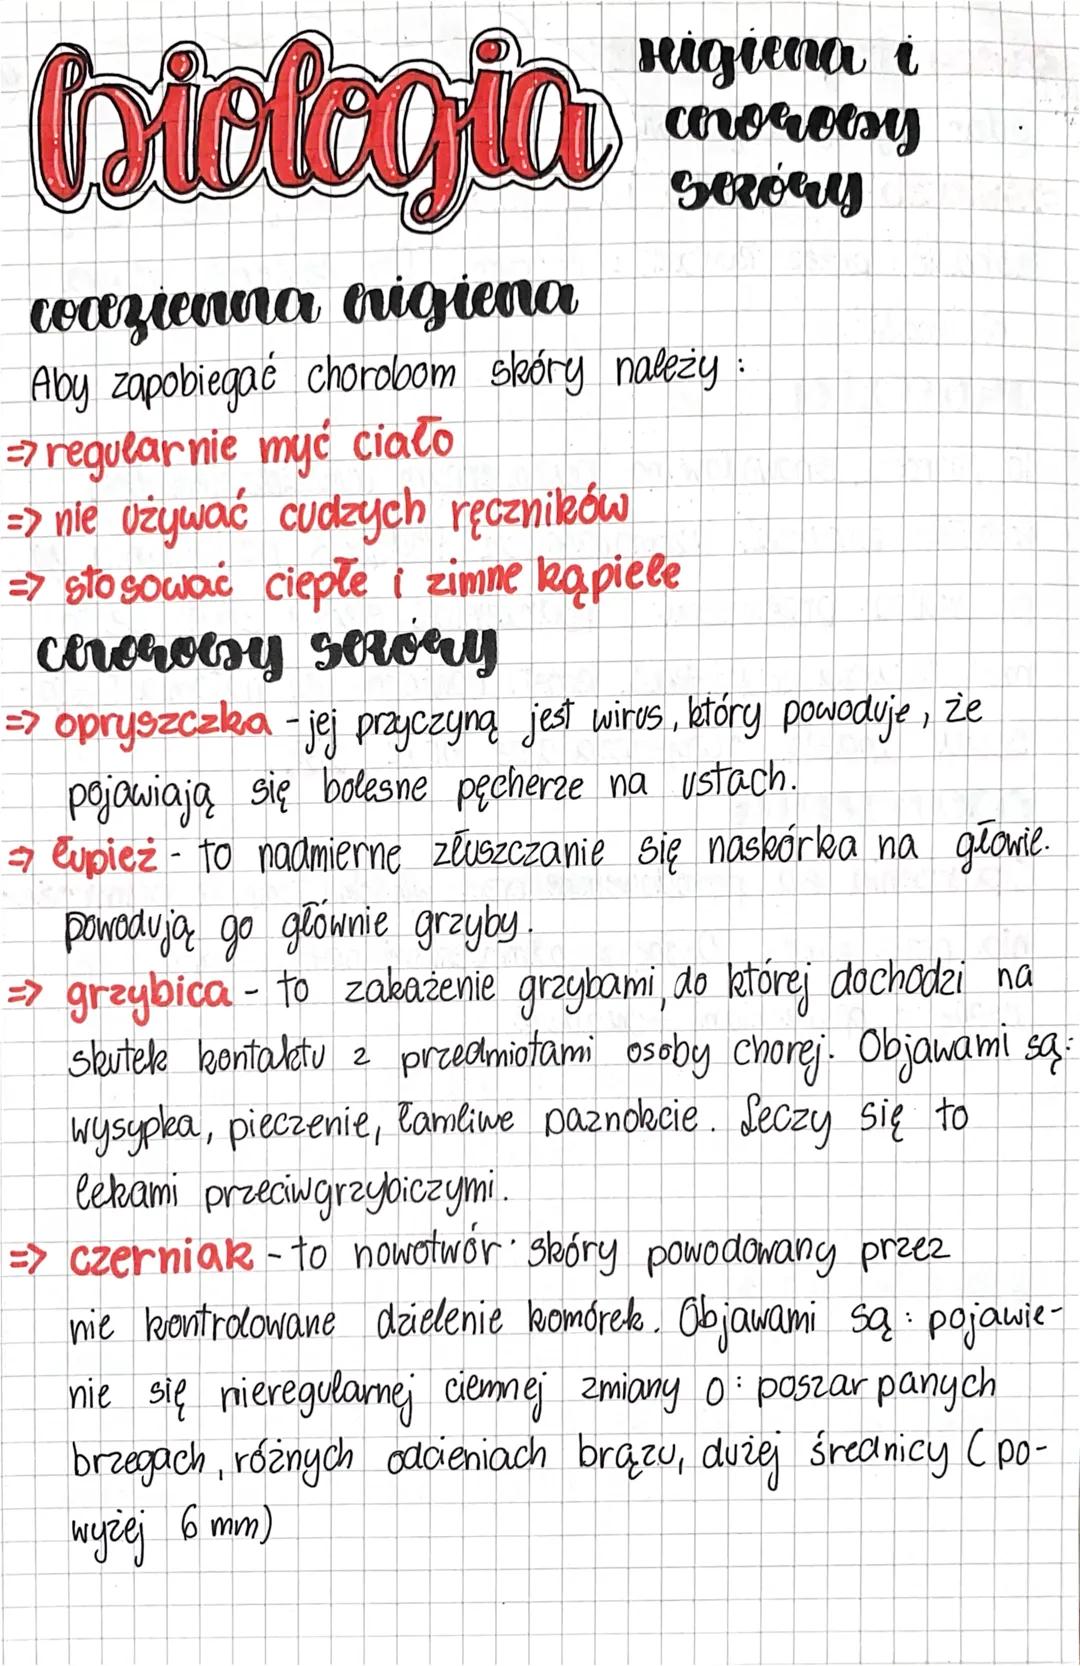 biologia
Higiena i
choroby
skóry
codzienna higiena
Aby zapobiegać chorobom skóry należy:
=> regularnie myć ciało
=> nie używać cudzych ręczników
=> stosować ciepłe i zimne kąpiele
choroby skóry
=> opryszczka - jej przyczyną jest wirus, który powoduje, że
pojawiają się bolesne pęcherze na ustach.
=> łupież - to nadmierne złuszczanie się naskórka na głowie.
powodują go głównie grzyby.
=> grzybica - to zakażenie grzybami, do której dochodzi na
skutek kontaktu z przedmiotami osoby chorej. Objawami są:
wysypka, pieczenie, łamliwe paznokcie. Leczy się to
lekami przeciwgrzybiczymi.
=> czerniak - to nowotwór skóry powodowany przez
nie kontrolowane dzielenie komórek. Objawami są: pojawie-
nie się nieregularnej ciemnej zmiany o: poszarpanych
brzegach, różnych odcieniach brązu, dużej średnicy (po-
wyżej 6 mm)